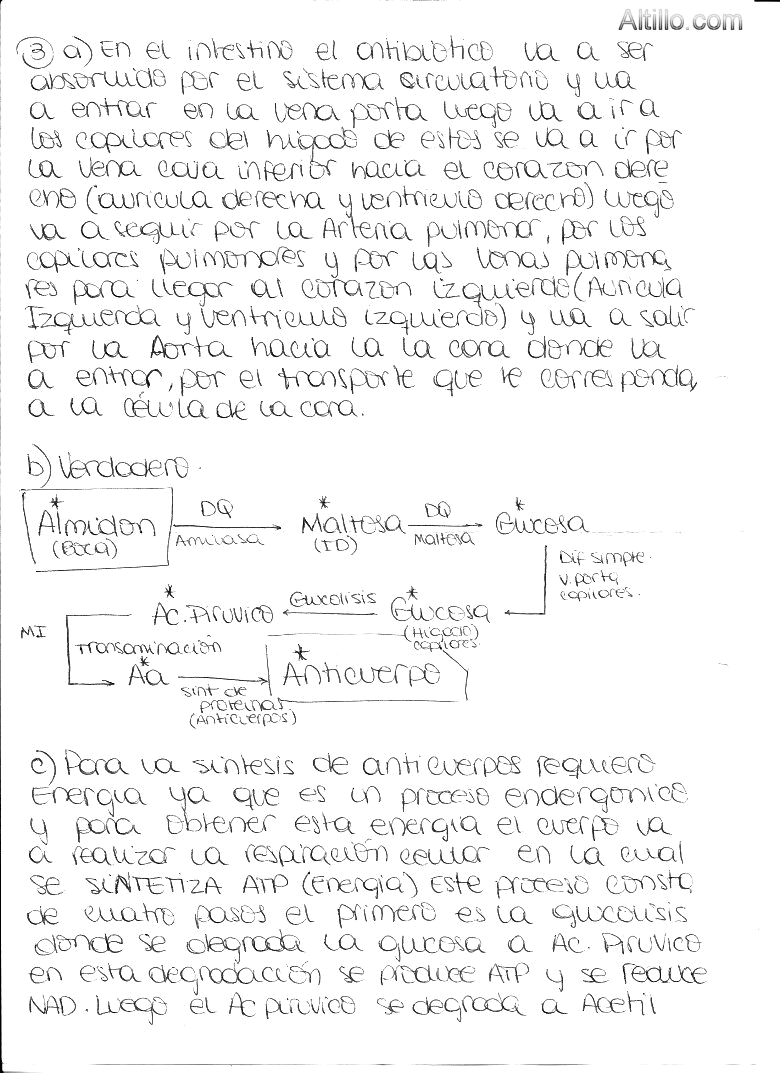 Altillo.com
③ a) En el intestino el antibiotico va a ser
absorvido por el sistema circulatorio y va
a entrar en la vena porta luego va a ir a
los capilares del higado de estos se va a ir por
la vena cava inferior hacia el corazon dere
cho (auricula derecha y ventriculo derecho) luego
va a seguir por la Arteria pulmonar, por los
capilares pulmonares y por las venas pulmona
res para llegar al corazon izquierdo (Auricula
Izquierda y ventriculo izquierdo) y va a salir
por la Aorta hacia la la cara donde va
a entrar, por el transporte que le corresponda,
a la célula de la cara.
b) Verdadero.
* * *
Almidon DQ Maltosa DQ Glucosa
(Boca) Amilasa (ID) Maltosa
Dif simple.
V. porta
capilares.
* *
Ac. Piruvico Glucolisis Glucosa
(Higado)
capilares.
MI Transaminación
* *
Aa Anticuerpo
sint de
proteinas.
(Anticuerpos)
c) Para la sintesis de anticuerpos requiero
Energia ya que es un proceso endergonico
y para obtener esta energia el cuerpo va
a realizar la respiración celular en la cual
se SINTETIZA ATP (Energia) Este proceso consta
de cuatro pasos el primero es la glucolisis
donde se degrada la glucosa a Ac. Piruvico
en esta degradación se produce ATP y se reduce
NAD. Luego el Ac piruvico se degrada a Acetil